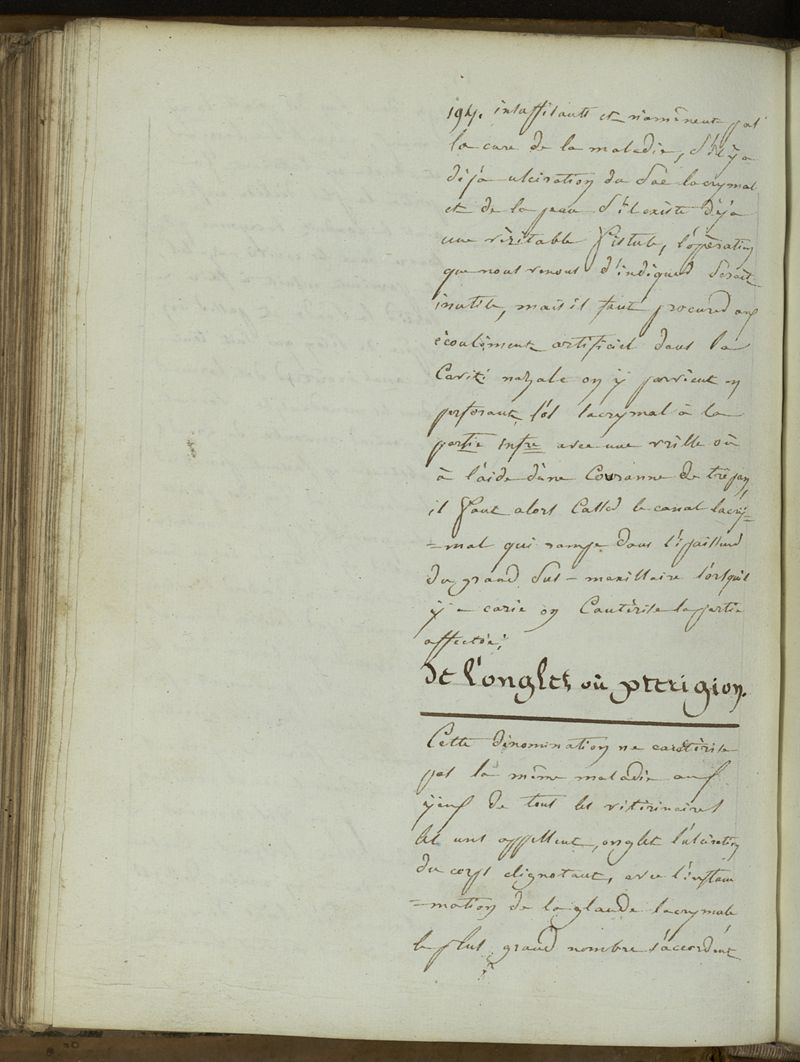 194. insuffisants et n'amènent pas
la cure de la maladie, s'il y a
déja ulcération du sac lacrymal
et de la peau s'il existe déja
une véritable fistule, l'opération
que nous venons d'indiqued serait
inutile, mais il faut procured un
écoulement artificiel dans la
Cavité nazale on y parvient en
perforant l'os lacrymal à la
partie infre avec une vrille où
à l'aide d'une Couronne de trépan,
il faut alors Cassed le canal lacry=
=mal qui rampe dans l'épaisseur
du grand sus-maxillaire lorsqu'il
y a carie on Cautérise la partie
affectée;
De l'onglet où pterigion.
Cette dénomination ne caractérise
pas la même maladie aux
yeux de tous les vétérinaires
les uns appellent, onglet l'ulcération
du corps clignotant, avec l'inflam
=mation de la glande lacrymale
le plus grand nombre s'accordent